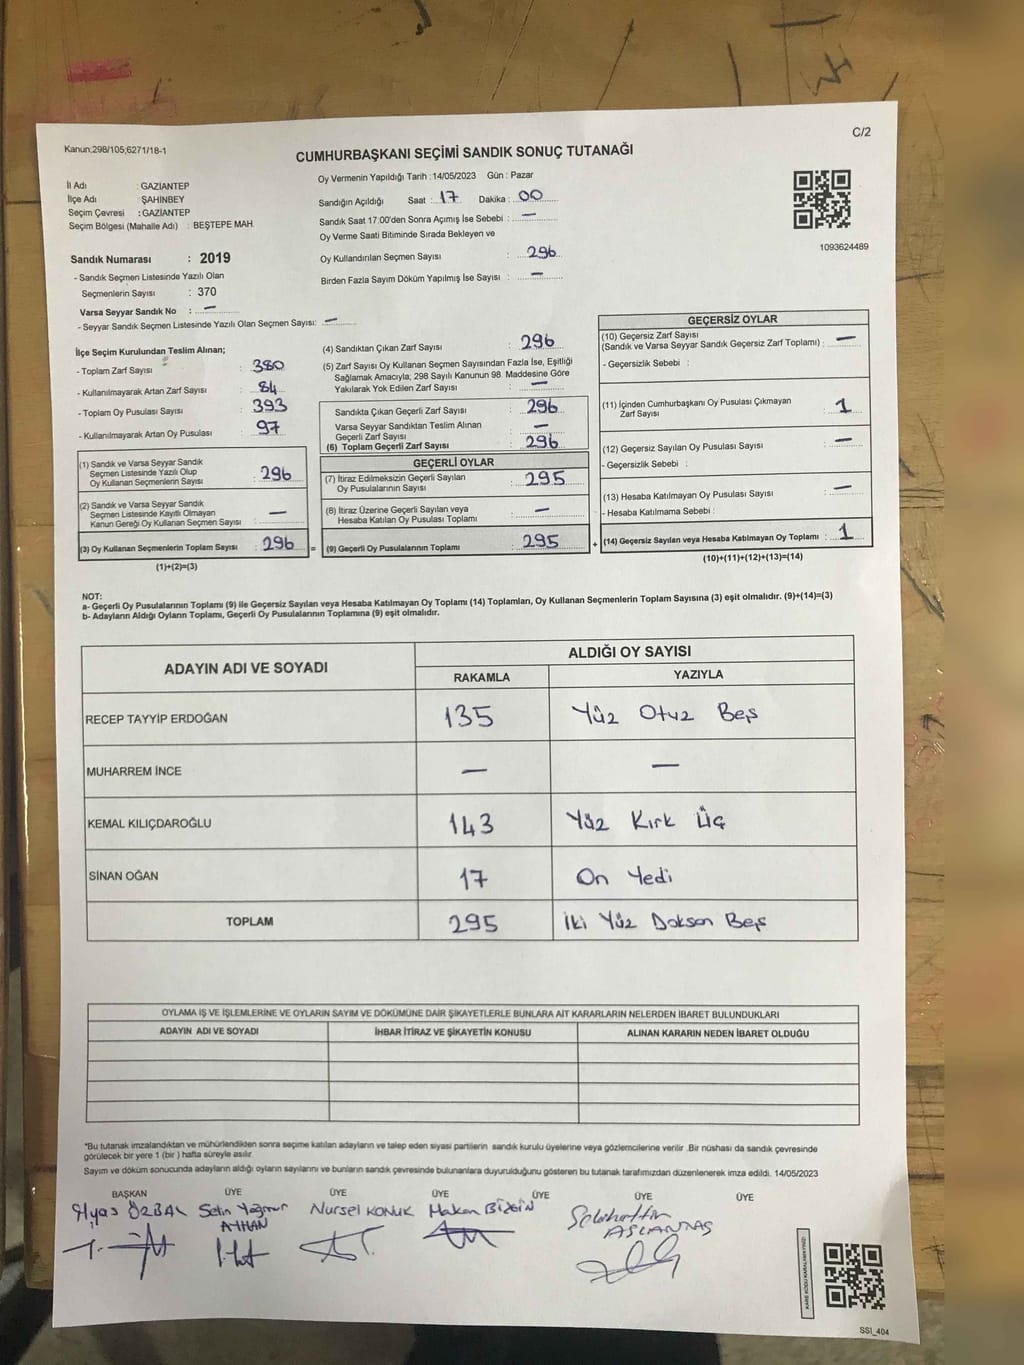 C/2
Kanun;298/105;6271/18-1
CUMHURBAŞKANI SEÇİMİ SANDIK SONUÇ TUTANAĞI
İl Adı : GAZİANTEP
İlçe Adı : ŞAHİNBEY
Seçim Çevresi : GAZİANTEP
Seçim Bölgesi (Mahalle Adı) : BEŞTEPE MAH.
Oy Vermenin Yapıldığı Tarih :14/05/2023 Gün : Pazar
Sandığın Açıldığı Saat : 17 Dakika : 00
Sandık Saat 17:00'den Sonra Açımış İse Sebebi : —
Oy Verme Saati Bitiminde Sırada Bekleyen ve
Oy Kullandırılan Seçmen Sayısı : 296
Birden Fazla Sayım Döküm Yapılmış İse Sayısı : —
1093624489
Sandık Numarası : 2019
- Sandık Seçmen Listesinde Yazılı Olan
Seçmenlerin Sayısı : 370
Varsa Seyyar Sandık No : —
- Seyyar Sandık Seçmen Listesinde Yazılı Olan Seçmen Sayısı: —
İlçe Seçim Kurulundan Teslim Alınan;
- Toplam Zarf Sayısı : 380
- Kullanılmayarak Artan Zarf Sayısı : 84
- Toplam Oy Pusulası Sayısı : 393
- Kullanılmayarak Artan Oy Pusulası : 97
(1) Sandık ve Varsa Seyyar Sandık
Seçmen Listesinde Yazılı Olup
Oy Kullanan Seçmenlerin Sayısı : 296
(2) Sandık ve Varsa Seyyar Sandık
Seçmen Listesinde Kayıtlı Olmayan
Kanun Gereği Oy Kullanan Seçmen Sayısı : —
(3) Oy Kullanan Seçmenlerin Toplam Sayısı : 296 =
(1)+(2)=(3)
(4) Sandıktan Çıkan Zarf Sayısı : 296
(5) Zarf Sayısı Oy Kullanan Seçmen Sayısından Fazla İse, Eşitliği
Sağlamak Amacıyla; 298 Sayılı Kanunun 98. Maddesine Göre
Yakılarak Yok Edilen Zarf Sayısı : —
Sandıkta Çıkan Geçerli Zarf Sayısı : 296
Varsa Seyyar Sandıktan Teslim Alınan
Geçerli Zarf Sayısı : —
(6) Toplam Geçerli Zarf Sayısı : 296
GEÇERLİ OYLAR
(7) İtiraz Edilmeksizin Geçerli Sayılan
Oy Pusulalarının Sayısı : 295
(8) İtiraz Üzerine Geçerli Sayılan veya
Hesaba Katılan Oy Pusulası Toplamı : —
(9) Geçerli Oy Pusulalarının Toplamı : 295 +
GEÇERSİZ OYLAR
(10) Geçersiz Zarf Sayısı
(Sandık ve Varsa Seyyar Sandık Geçersiz Zarf Toplamı) : —
- Geçersizlik Sebebi :
(11) İçinden Cumhurbaşkanı Oy Pusulası Çıkmayan
Zarf Sayısı : 1
(12) Geçersiz Sayılan Oy Pusulası Sayısı : —
- Geçersizlik Sebebi :
(13) Hesaba Katılmayan Oy Pusulası Sayısı : —
- Hesaba Katılmama Sebebi :
(14) Geçersiz Sayılan veya Hesaba Katılmayan Oy Toplamı : 1
(10)+(11)+(12)+(13)=(14)
NOT:
a- Geçerli Oy Pusulalarının Toplamı (9) ile Geçersiz Sayılan veya Hesaba Katılmayan Oy Toplamı (14) Toplamları, Oy Kullanan Seçmenlerin Toplam Sayısına (3) eşit olmalıdır. (9)+(14)=(3)
b- Adayların Aldığı Oyların Toplamı, Geçerli Oy Pusulalarının Toplamına (9) eşit olmalıdır.
ADAYIN ADI VE SOYADI
ALDIĞI OY SAYISI
RAKAMLA YAZIYLA
RECEP TAYYİP ERDOĞAN 135 Yüz Otuz Beş
MUHARREM İNCE — —
KEMAL KILIÇDAROĞLU 143 Yüz Kırk Üç
SİNAN OĞAN 17 On Yedi
TOPLAM 295 İki Yüz Doksan Beş
OYLAMA İŞ VE İŞLEMLERİNE VE OYLARIN SAYIM VE DÖKÜMÜNE DAİR ŞİKAYETLERLE BUNLARA AİT KARARLARIN NELERDEN İBARET BULUNDUKLARI
ADAYIN ADI VE SOYADI İHBAR İTİRAZ VE ŞİKAYETİN KONUSU ALINAN KARARIN NEDEN İBARET OLDUĞU
*Bu tutanak imzalandıktan ve mühürlendikten sonra seçime katılan adayların ve talep eden siyasi partilerin sandık kurulu üyelerine veya gözlemcilerine verilir .Bir nüshası da sandık çevresinde
görülecek bir yere 1 (bir ) hafta süreyle asılır.
Sayım ve döküm sonucunda adayların aldığı oyların sayılarını ve bunların sandık çevresinde bulunanlara duyurulduğunu gösteren bu tutanak tarafımızdan düzenlenerek imza edildi. 14/05/2023
BAŞKAN ÜYE ÜYE ÜYE ÜYE ÜYE ÜYE
İlyas ÖZBAL Selin Yağmur Nursel KONUK Hakan BİLGİN Selahattin
AYHAN ASLANTAŞ
KARE KODU KARALAMAYINIZ!
SSİ_404